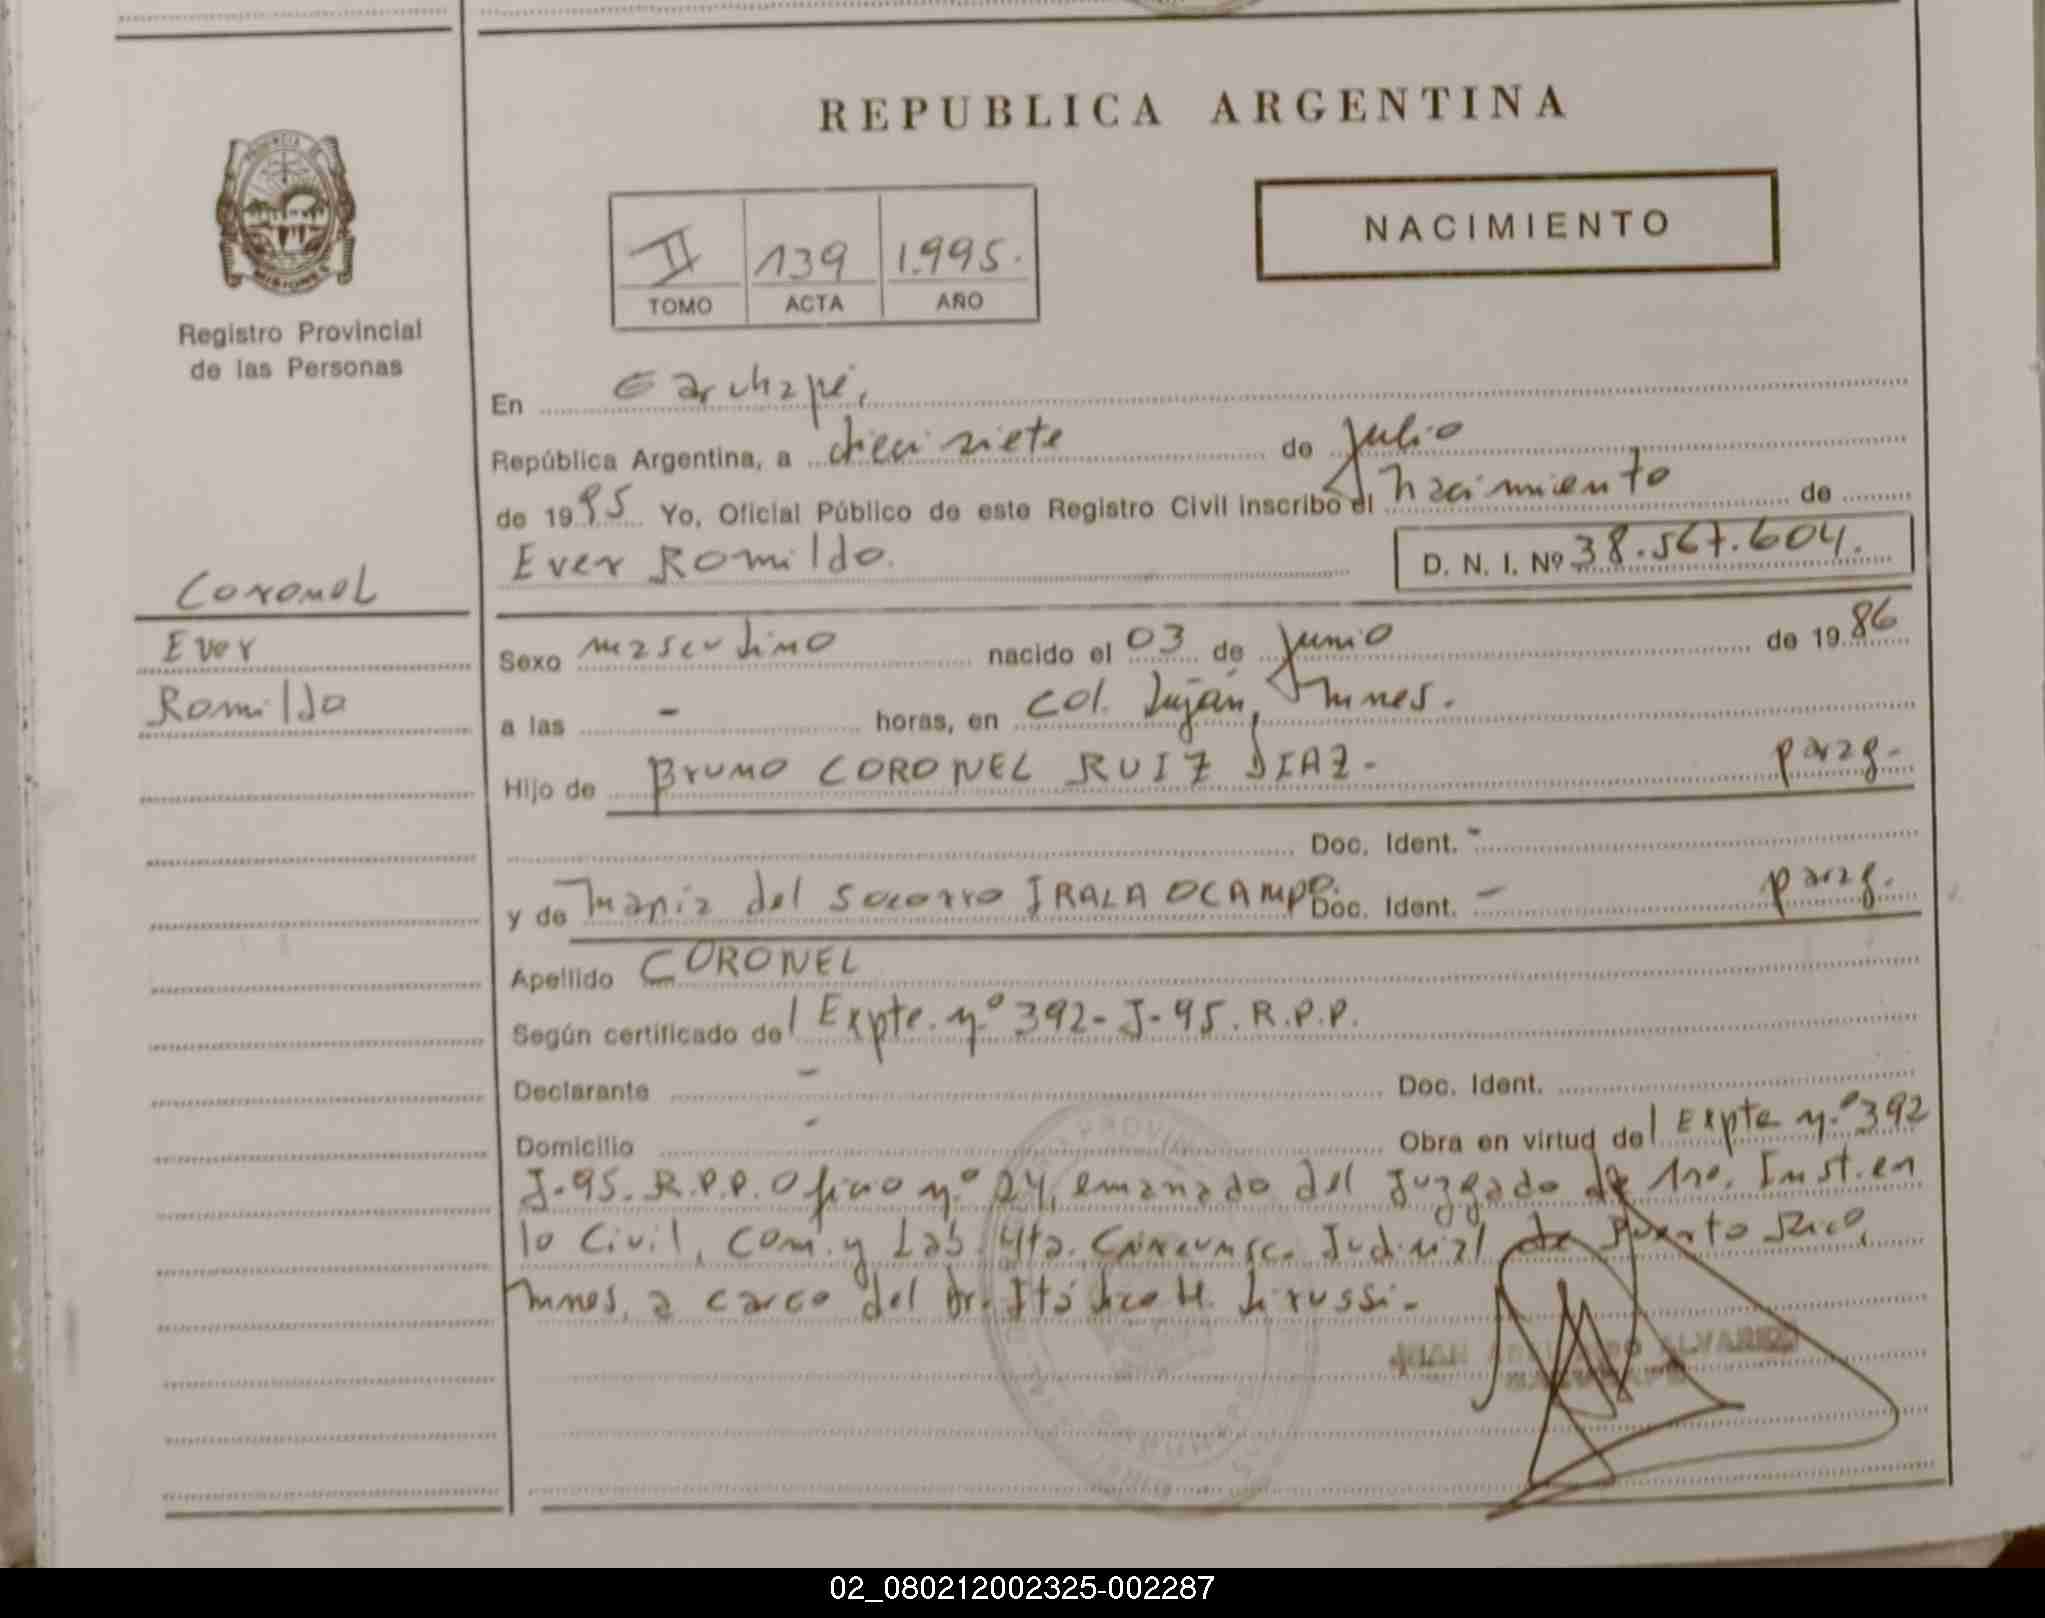 REPUBLICA ARGENTINA
NACIMIENTO
II 139 1.995.
TOMO ACTA AÑO
PROVINCIA DE
MISIONES
Registro Provincial
de las Personas
En Garuhapé,
República Argentina, a dieci siete de Julio
de 1995 Yo, Oficial Público de este Registro Civil inscribo el nacimiento de
Ever Romildo. D. N. I. Nº 38.567.604.
Coronel
Ever
Romildo
Sexo masculino nacido el 03 de Junio de 1986
a las - horas, en Col. Luján, Mnes.
Hijo de Bruno CORONEL RUIZ DIAZ- parag-
Doc. Ident. -
y de María del Socorro IRALA OCAMPO. Doc. Ident. - parag.
Apellido CORONEL
Según certificado del Expte. nº 392-J-95. R.P.P.
Declarante - Doc. Ident.
Domicilio - Obra en virtud del Expte nº 392
J-95. R.P.P. Oficio nº 24, emanado del Juzgado de 1ra. Inst. en
lo Civil, Com. y Lab. 4ta. Circunsc. Judicial de Puerto Rico,
Mnes, a cargo del Dr.
JUAN ALVAREZ
GARUHAPE
02_080212002325-002287